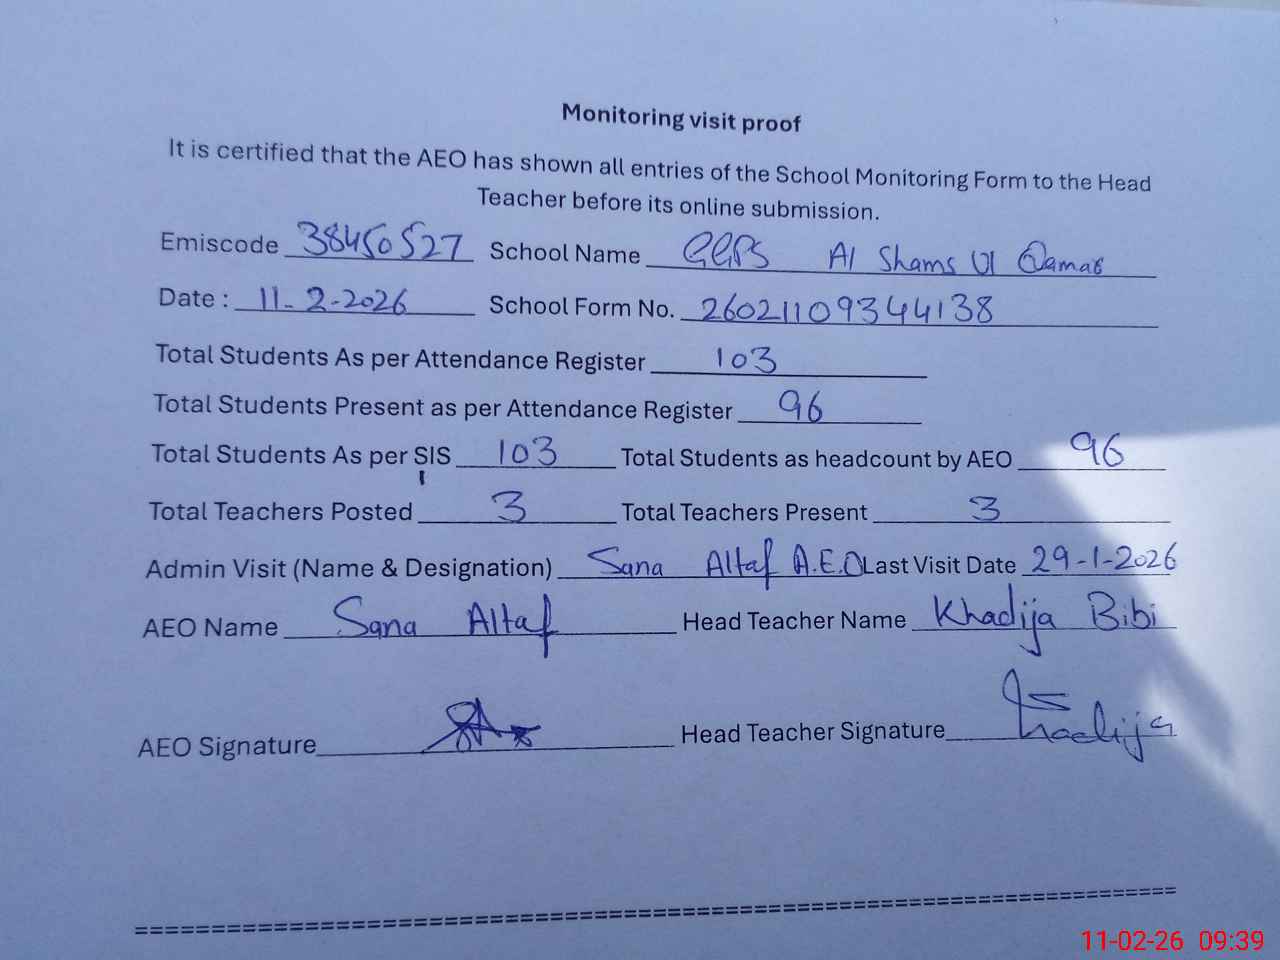 Monitoring visit proof
It is certified that the AEO has shown all entries of the School Monitoring Form to the Head
Teacher before its online submission.
Emiscode 38450527 School Name GGPS Al Shams Ul Qamar
Date : 11-2-2026 School Form No. 26021109344138
Total Students As per Attendance Register 103
Total Students Present as per Attendance Register 96
Total Students As per SIS 103 Total Students as headcount by AEO 96
Total Teachers Posted 3 Total Teachers Present 3
Admin Visit (Name & Designation) Sana Altaf A.E.O Last Visit Date 29-1-2026
AEO Name Sana Altaf Head Teacher Name Khadija Bibi
AEO Signature Head Teacher Signature Khadija
11-02-26 09:39